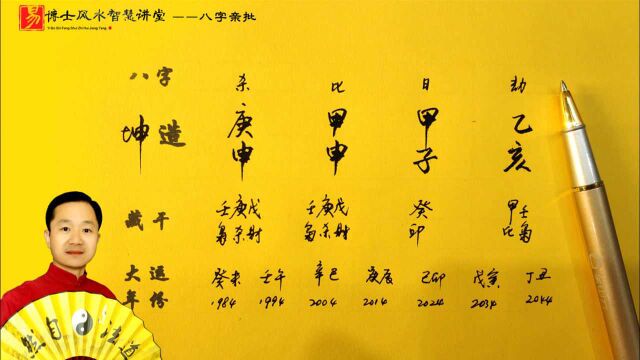 易 博士风水智慧讲堂 ——八字亲批
八字 杀 比 日 劫
坤造 庚 甲 甲 乙
申 申 子 亥
藏干 壬庚戊 壬庚戊 癸 甲壬
枭杀财 枭杀财 印 比枭
大运 癸未 壬午 辛巳 庚辰 己卯 戊寅 丁丑
年份 1984 1994 2004 2014 2024 2034 2044
然自法道